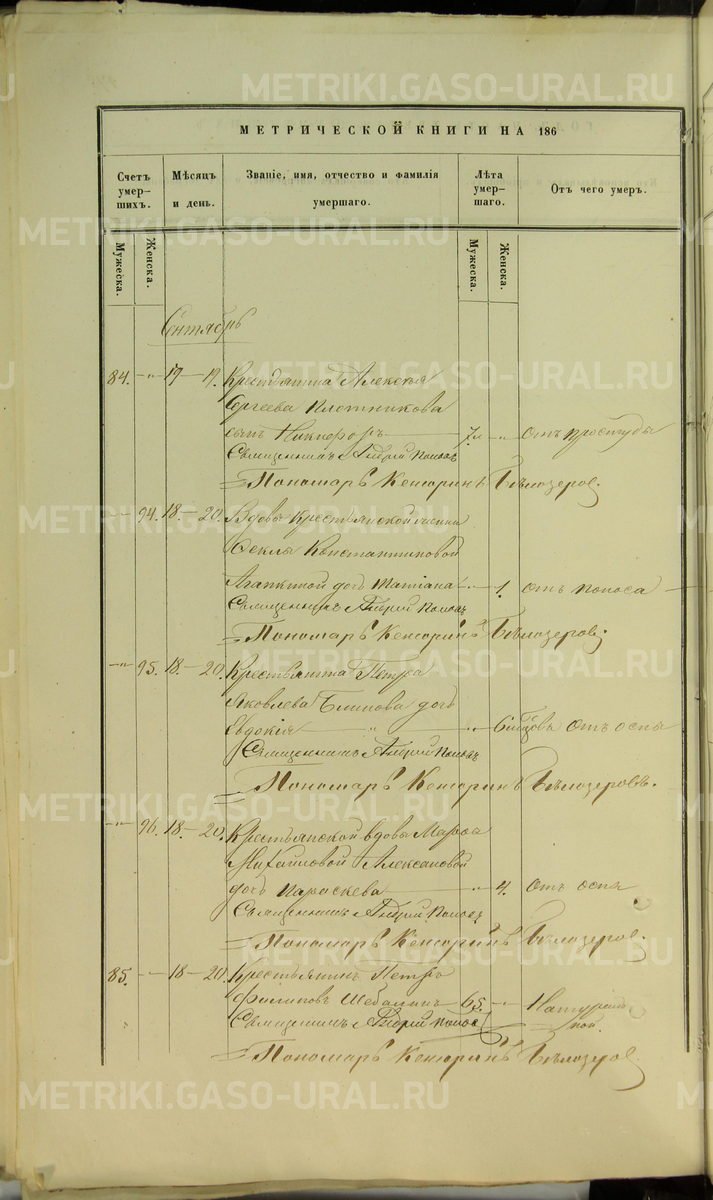 METRIKI.GASO-URAL.RU
МЕТРИЧЕСКОЙ КНИГИ НА 186
Счетъ умер-шихъ.
Мѣсяцъ и день.
Званіе, имя, отчество и фамилія умершаго.
Лѣта умер-шаго.
Отъ чего умеръ.
Мужеска.
Женска.
Мужеска.
Женска.
Сентябрь
84. -"- 17 - 19. Крестьянина Алексѣя
Сергеева Плотникова
сынъ Никифоръ 7 м " Отъ простуды
Священникъ Андрей Поповъ
Пономарь Бѣлозеровъ.
-"- 94. 18. - 20. Вдовы Крестьянской
Феклы Константиновой
дочь Татіана -"- 1. Отъ поноса
Священникъ Андрей Поповъ
Пономарь Бѣлозеровъ.
-"- 95. 18. - 20. Крестьянина Петра
Яковлева Блинова дочь
Евдокія " 6 Отъ оспы
Священникъ Андрей Поповъ
Пономарь Бѣлозеровъ.
-"- 96. 18. - 20. Крестьянской вдовы
Михайловой дочь Параскева -"- 4. Отъ оспы
Священникъ Андрей Поповъ
Пономарь Бѣлозеровъ.
85. -"- 18 - 20. Крестьянинъ Петръ
Филиповъ 65. -"-
Священникъ Андрей Поповъ
Пономарь Бѣлозеровъ.